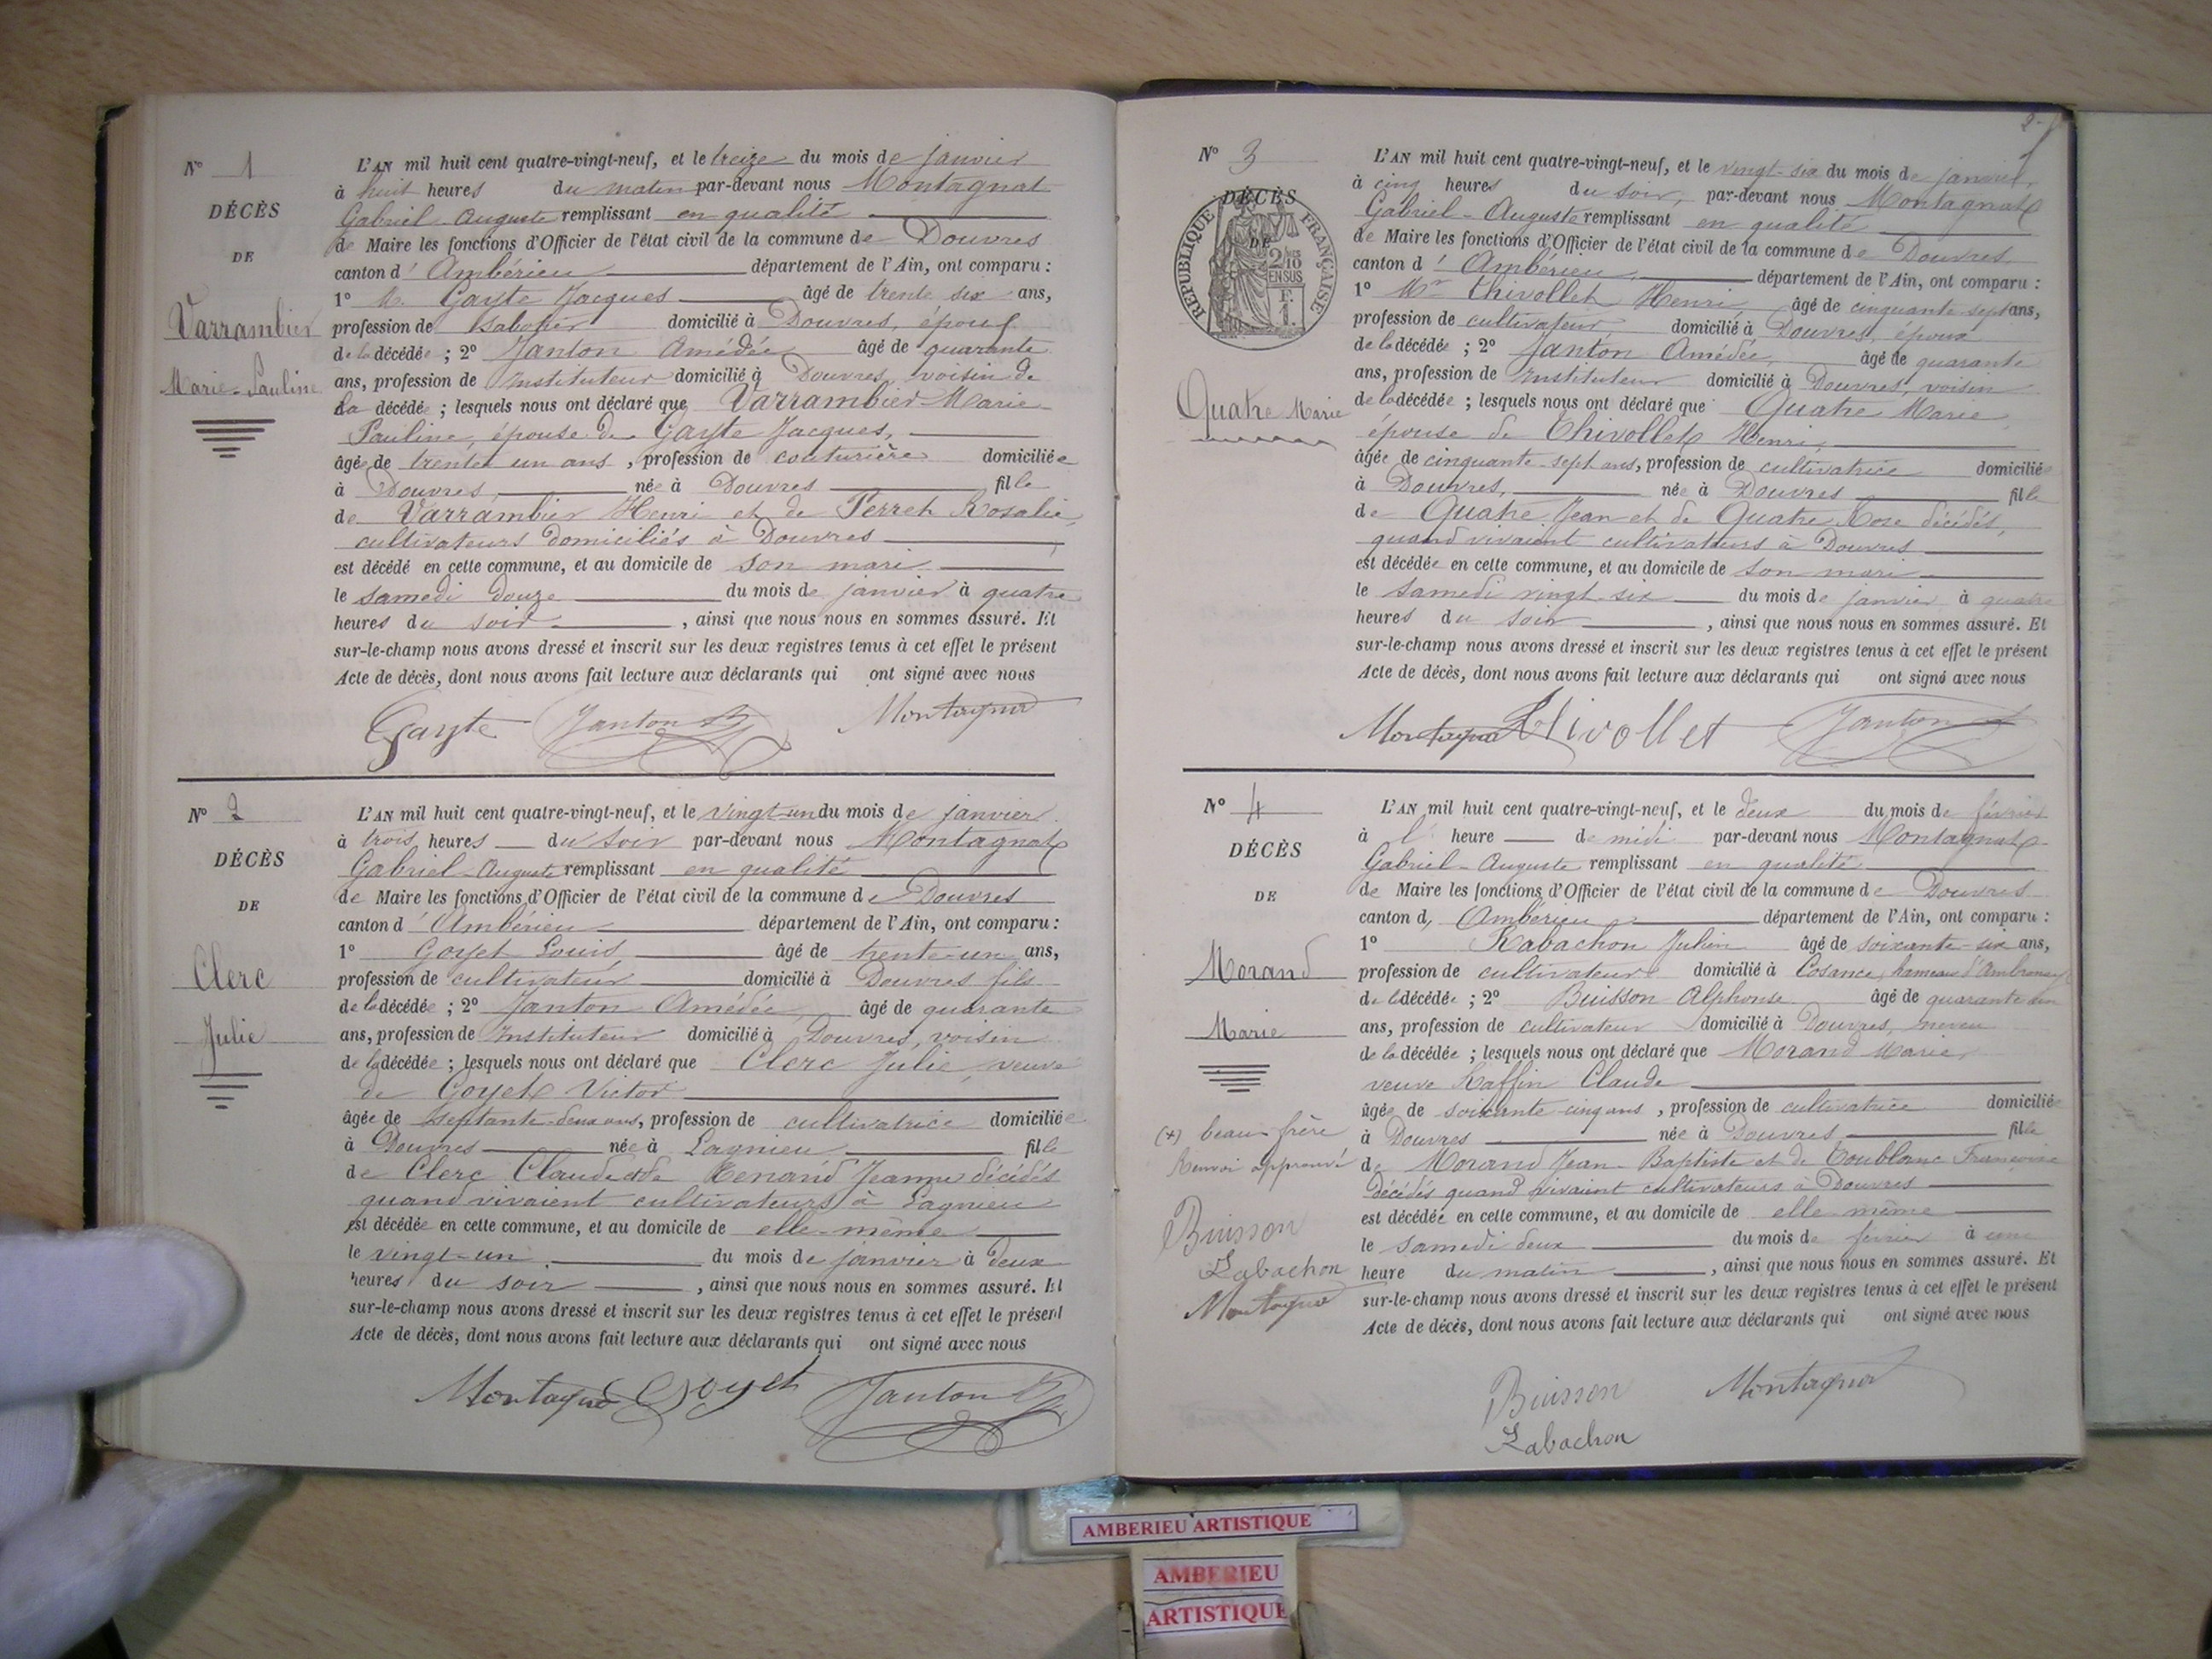 N° 1
DÉCÈS
DE
Varrambier
Marie-Pauline
L'AN mil huit cent quatre-vingt-neuf, et le treize du mois de janvier
à huit heures du matin par-devant nous Montagnat
Gabriel-Auguste remplissant en qualité
de Maire les fonctions d'Officier de l'état civil de la commune de Douvres
canton d'Ambérieu département de l'Ain, ont comparu :
1° M. Gayte Jacques âgé de trente six ans,
profession de sabotier domicilié à Douvres, époux
de la décédée ; 2° Janton Amédée âgé de quarante
ans, profession de Instituteur domicilié à Douvres, voisin de
la décédée ; lesquels nous ont déclaré que Varrambier Marie-
Pauline, épouse de Gayte Jacques,
âgée de trente un ans, profession de couturière domiciliée
à Douvres, née à Douvres fille
de Varrambier Henri et de Perret Rosalie,
cultivateurs domiciliés à Douvres
est décédé en cette commune, et au domicile de son mari
le samedi douze du mois de janvier à quatre
heures du soir, ainsi que nous nous en sommes assuré. Et
sur-le-champ nous avons dressé et inscrit sur les deux registres tenus à cet effet le présent
Acte de décès, dont nous avons fait lecture aux déclarants qui ont signé avec nous
Gayte Janton Montagnat
N° 2
DÉCÈS
DE
Clerc
Julie
L'AN mil huit cent quatre-vingt-neuf, et le vingt-un du mois de janvier
à trois heures du soir par-devant nous Montagnat
Gabriel-Auguste remplissant en qualité
de Maire les fonctions d'Officier de l'état civil de la commune de Douvres
canton d'Ambérieu département de l'Ain, ont comparu :
1° Goyet Louis, âgé de trente-un ans,
profession de cultivateur domicilié à Douvres fils
de la décédée ; 2° Janton Amédée, âgé de quarante
ans, profession de Instituteur domicilié à Douvres, voisin
de la décédée ; lesquels nous ont déclaré que Clerc Julie, veuve
de Goyet Victor
âgée de septante-deux ans, profession de cultivatrice domiciliée
à Douvres née à Lagnieu fille
de Clerc Claude et de Renard Jeanne décédés
quand vivaient cultivateurs à Lagnieu
est décédée en cette commune, et au domicile de elle-même
le vingt-un du mois de janvier à deux
heures du soir, ainsi que nous nous en sommes assuré. Et
sur-le-champ nous avons dressé et inscrit sur les deux registres tenus à cet effet le présent
Acte de décès, dont nous avons fait lecture aux déclarants qui ont signé avec nous
Montagnat Goyet Janton
N° 3
DÉCÈS
DE
RÉPUBLIQUE FRANÇAISE
2/10
EN SUS
F.
1.
Quatre Marie
L'AN mil huit cent quatre-vingt-neuf, et le vingt-six du mois de janvier,
à cinq heures du soir, par-devant nous Montagnat
Gabriel-Auguste remplissant en qualité
de Maire les fonctions d'Officier de l'état civil de la commune de Douvres
canton d'Ambérieu, département de l'Ain, ont comparu :
1° Mr Thivollet Henri, âgé de cinquante-sept ans,
profession de cultivateur, domicilié à Douvres, époux
de la décédée ; 2° Janton Amédée, âgé de quarante
ans, profession de Instituteur domicilié à Douvres, voisin
de la décédée ; lesquels nous ont déclaré que Quatre Marie,
épouse de Thivollet Henri,
âgée de cinquante-sept ans, profession de cultivatrice domiciliée
à Douvres, née à Douvres fille
de Quatre Jean et de Quatre Rose décédés,
quand vivaient cultivateurs à Douvres
est décédée en cette commune, et au domicile de son mari
le samedi vingt-six du mois de janvier à quatre
heures du soir, ainsi que nous nous en sommes assuré. Et
sur-le-champ nous avons dressé et inscrit sur les deux registres tenus à cet effet le présent
Acte de décès, dont nous avons fait lecture aux déclarants qui ont signé avec nous
Montagnat Thivollet Janton
N° 4
DÉCÈS
DE
Morand
Marie
(+) beau-frère
Renvoi approuvé
Buisson
Rabachon
Montagnat
L'AN mil huit cent quatre-vingt-neuf, et le deux du mois de février
à l' heure de midi par-devant nous Montagnat
Gabriel-Auguste remplissant en qualité
de Maire les fonctions d'Officier de l'état civil de la commune de Douvres
canton d'Ambérieu département de l'Ain, ont comparu :
1° Rabachon Julien âgé de soixante-six ans,
profession de cultivateur domicilié à Cosance, hameau d'Ambronay
de la décédée ; 2° Buisson Alphonse âgé de quarante un
ans, profession de cultivateur domicilié à Douvres, neveu
de la décédée ; lesquels nous ont déclaré que Morand Marie,
veuve Raffin Claude
âgée de soixante-cinq ans, profession de cultivatrice domiciliée
à Douvres née à Douvres fille
de Morand Jean-Baptiste et de Toublanc Françoise
décédés quand vivaient cultivateurs à Douvres
est décédée en cette commune, et au domicile de elle-même
le samedi deux du mois de février à une
heure du matin, ainsi que nous nous en sommes assuré. Et
sur-le-champ nous avons dressé et inscrit sur les deux registres tenus à cet effet le présent
Acte de décès, dont nous avons fait lecture aux déclarants qui ont signé avec nous
Buisson Montagnat
Rabachon
AMBERIEU ARTISTIQUE
AMBERIEU
ARTISTIQUE